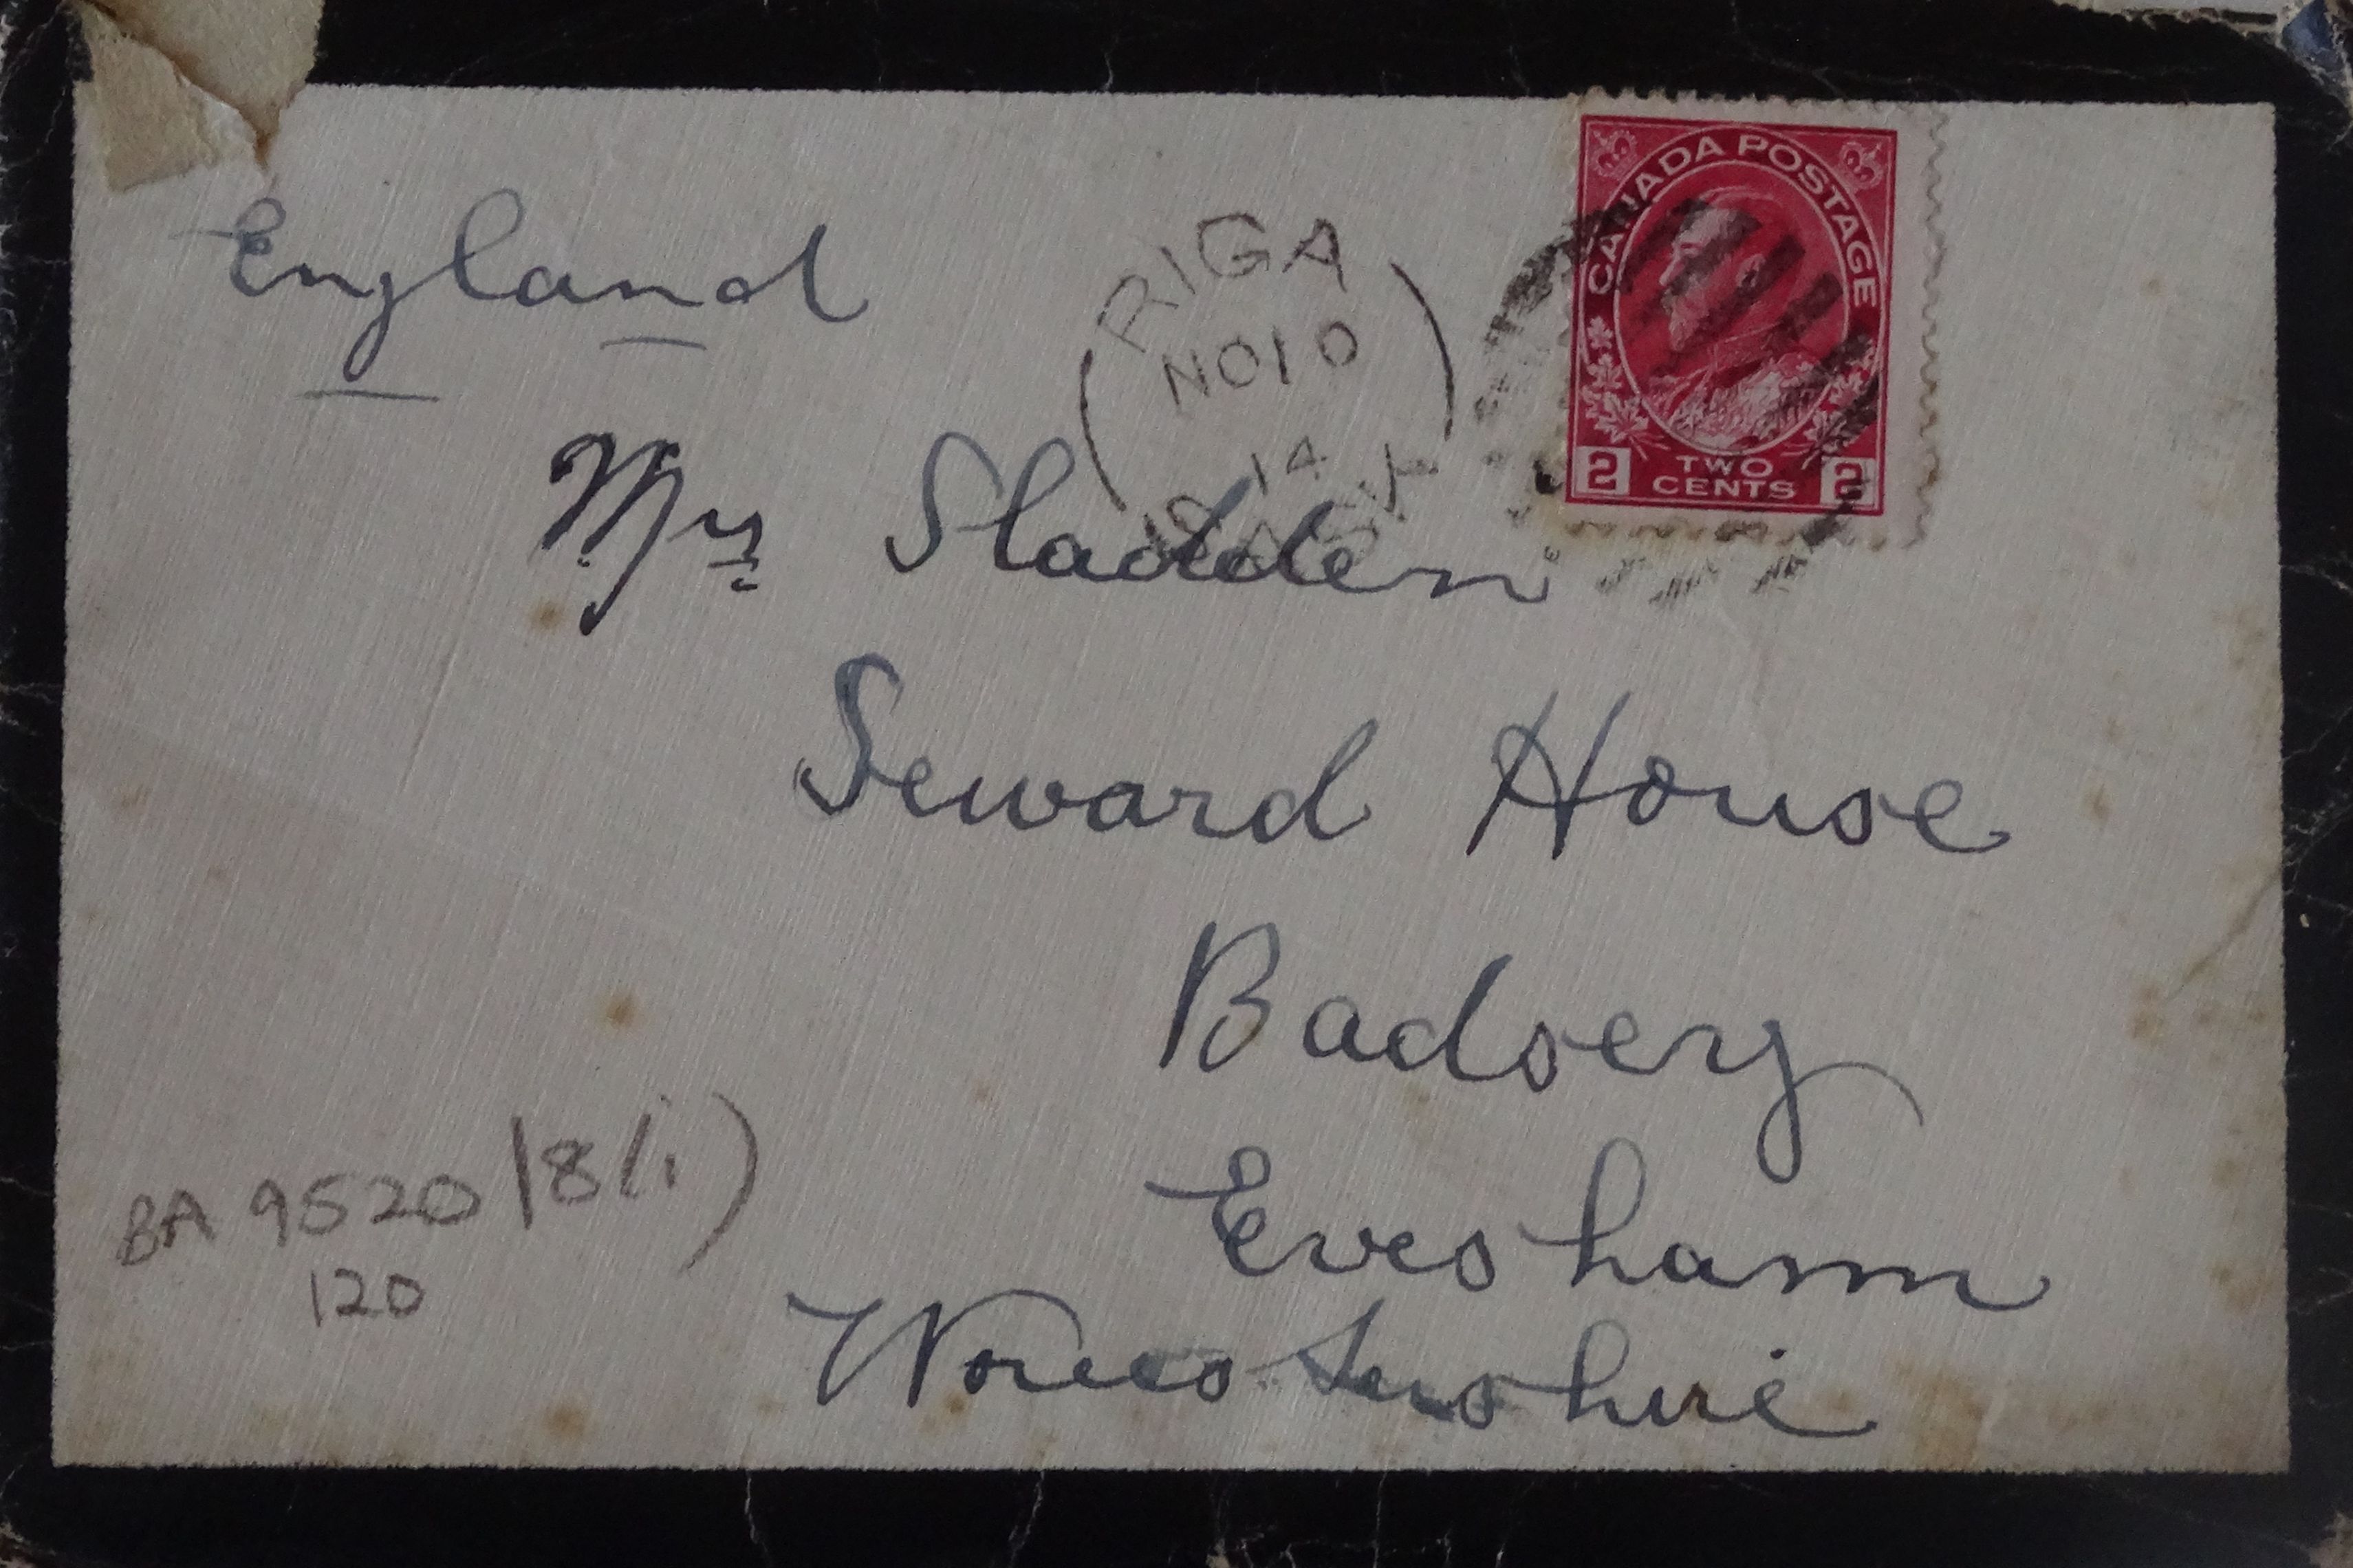 England
CANADA POSTAGE
2 TWO CENTS 2
RIGA
NO 10
14
SASK
Mrs Sladden
Seward House
Badsey
Evesham
Worcestershire
BA 9520/8(i)
120